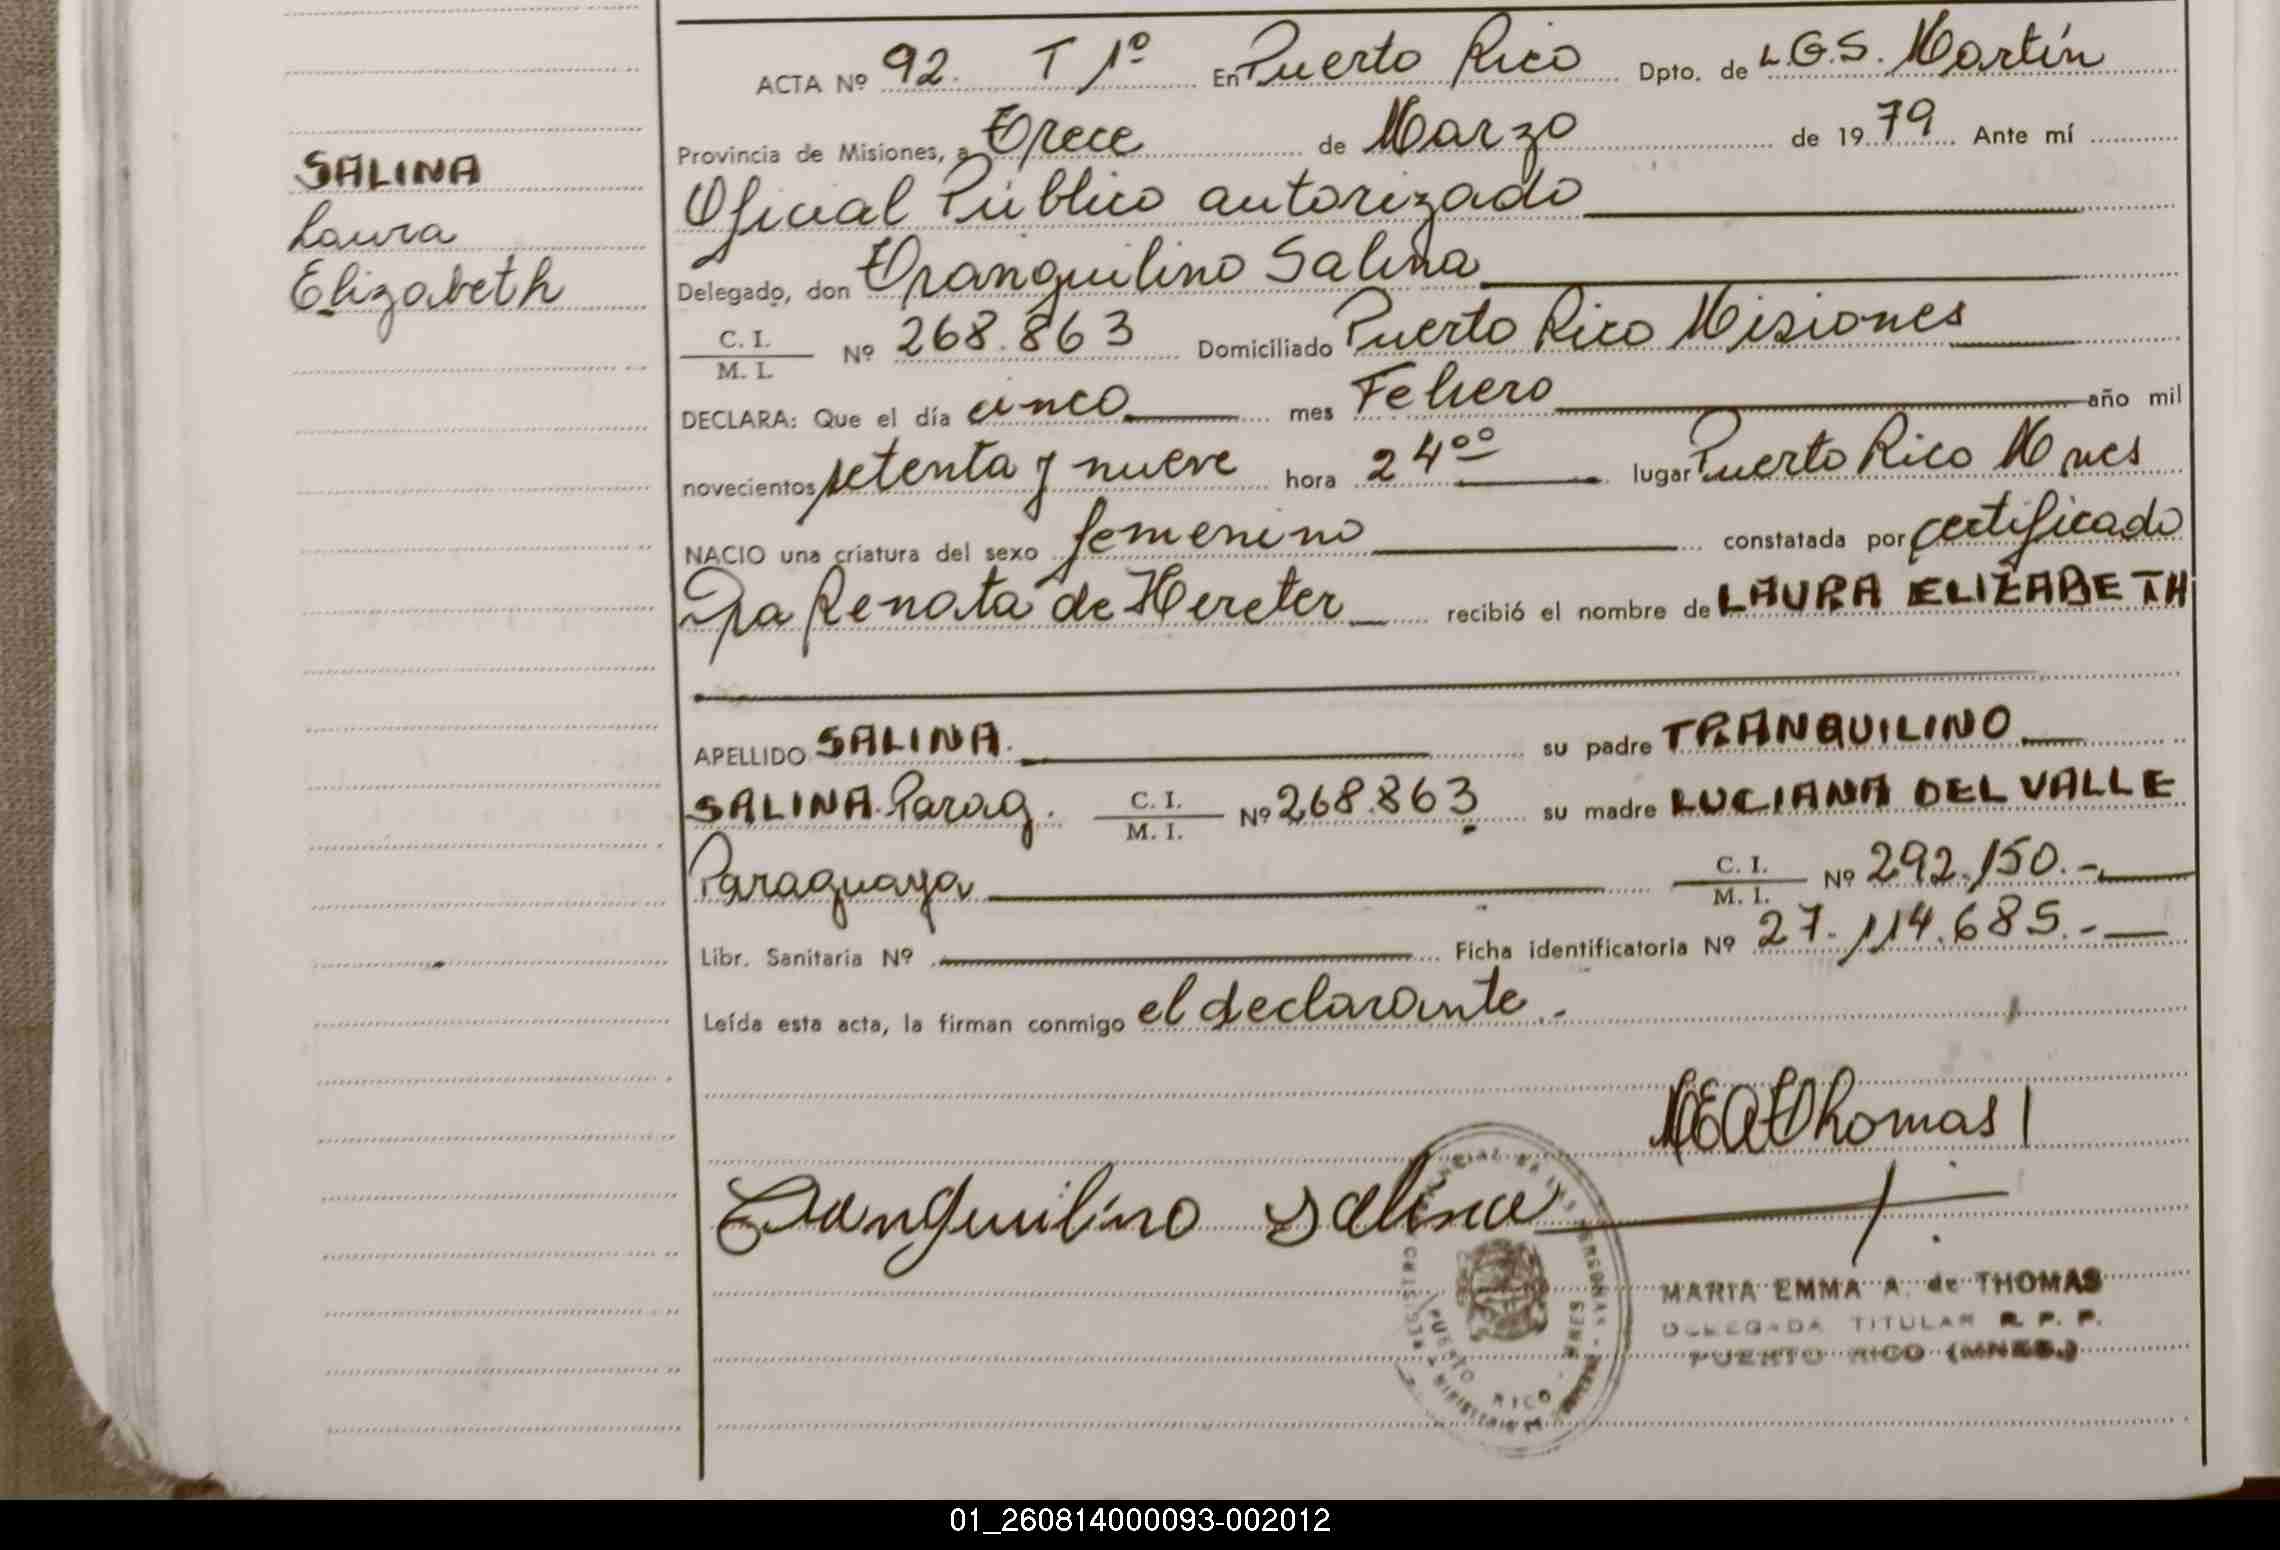 ACTA Nº 92. T 1º En Puerto Rico Dpto. de L G.S. Martín
Provincia de Misiones, a Trece de Marzo de 1979 Ante mí
SALINA
Oficial Público autorizado
Laura
Delegado, don Tranquilino Salina
Elizabeth
C. I.
M. I. Nº 268.863 Domiciliado Puerto Rico Misiones
DECLARA: Que el día cinco mes Febrero año mil
novecientos setenta y nueve hora 24ºº lugar Puerto Rico Mnes
NACIO una criatura del sexo femenino constatada por certificado
Renata de Hereter recibió el nombre de LAURA ELIZABETH
APELLIDO SALINA. su padre TRANQUILINO
SALINA. Parag. C. I. M. I. Nº 268.863 su madre LUCIANA DEL VALLE
Paraguaya C. I. M. I. Nº 292.150.-
Libr. Sanitaria Nº Ficha identificatoria Nº 27.114.685.-
Leída esta acta, la firman conmigo el declarante.-
MEAThomas
Tranquilino Salina
MARIA EMMA A. de THOMAS
DELEGADA TITULAR R. P. P.
PUERTO RICO (MNES.)
PUERTO RICO - MNES
01_260814000093-002012